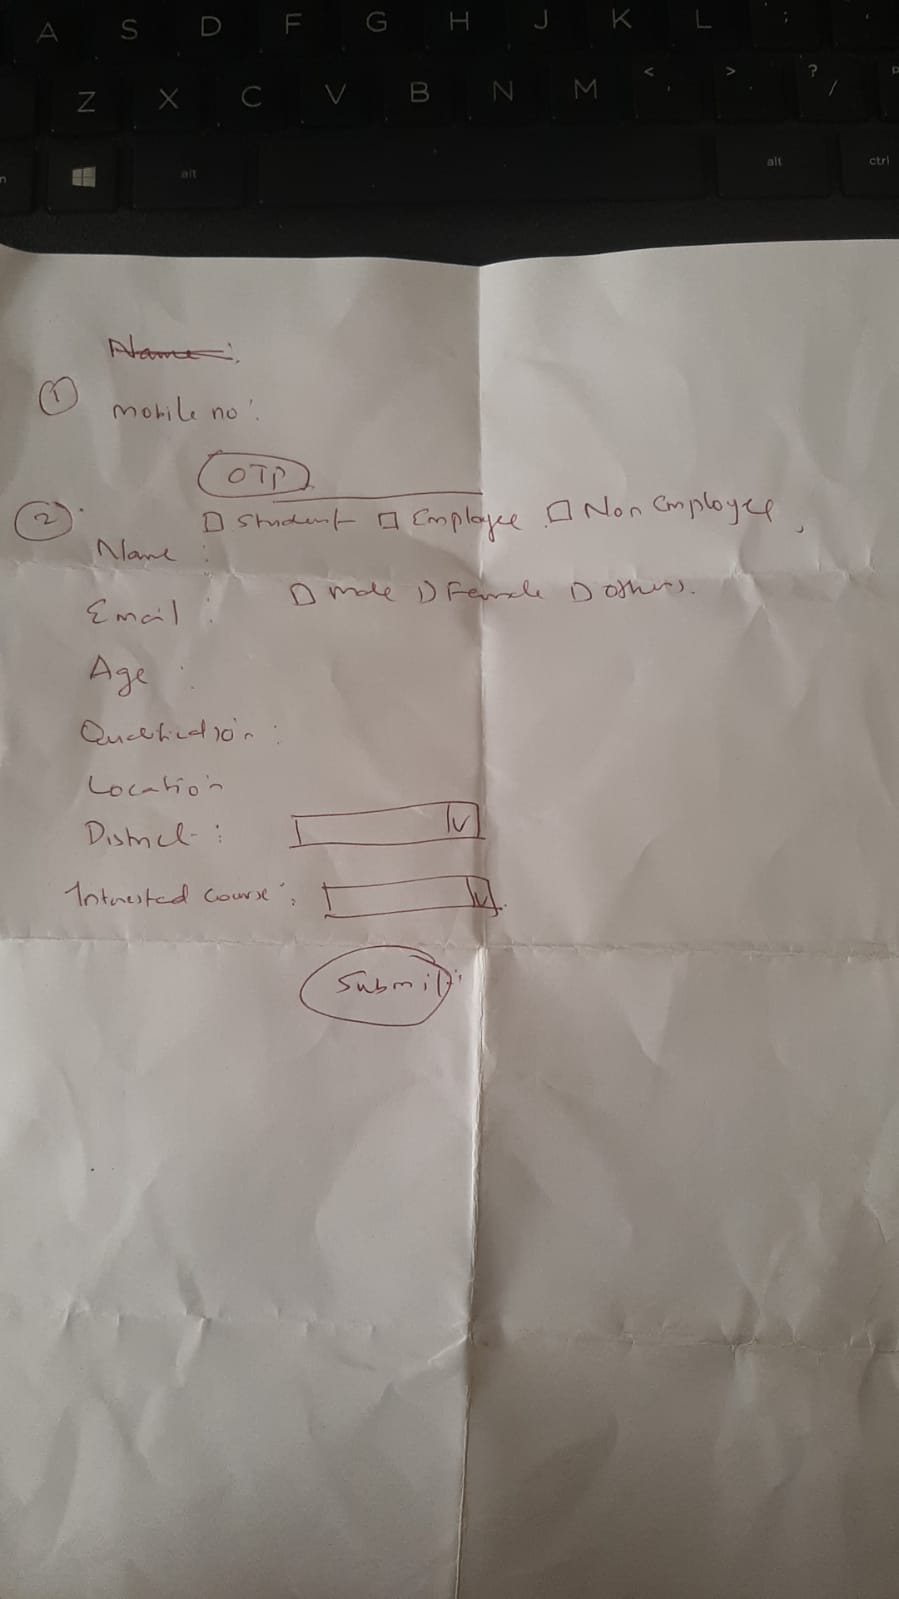 A S D F G H J K L ;
Z X C V B N M < , > . ? /
alt alt ctrl
Name:
1 mobile no:
OTP
2 Student Employee Non Employee,
Name :
Email : male Female others.
Age :
Qualification :
Location
District :
Interested Course :
Submit